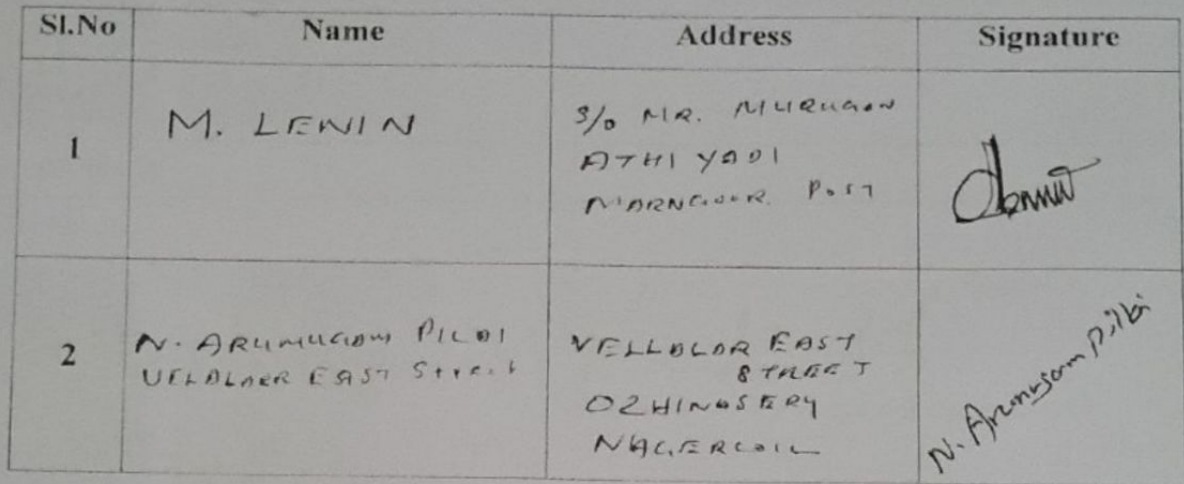 Sl.No Name Address Signature
1 M. LENIN S/o MR. MURUGAN
ATHIYADI
POST
2 N. ARUMUGAM PILLAI VELLALAR EAST
EAST Street STREET
OZHINASERY
NAGERCOIL
N. Arumugam pillai